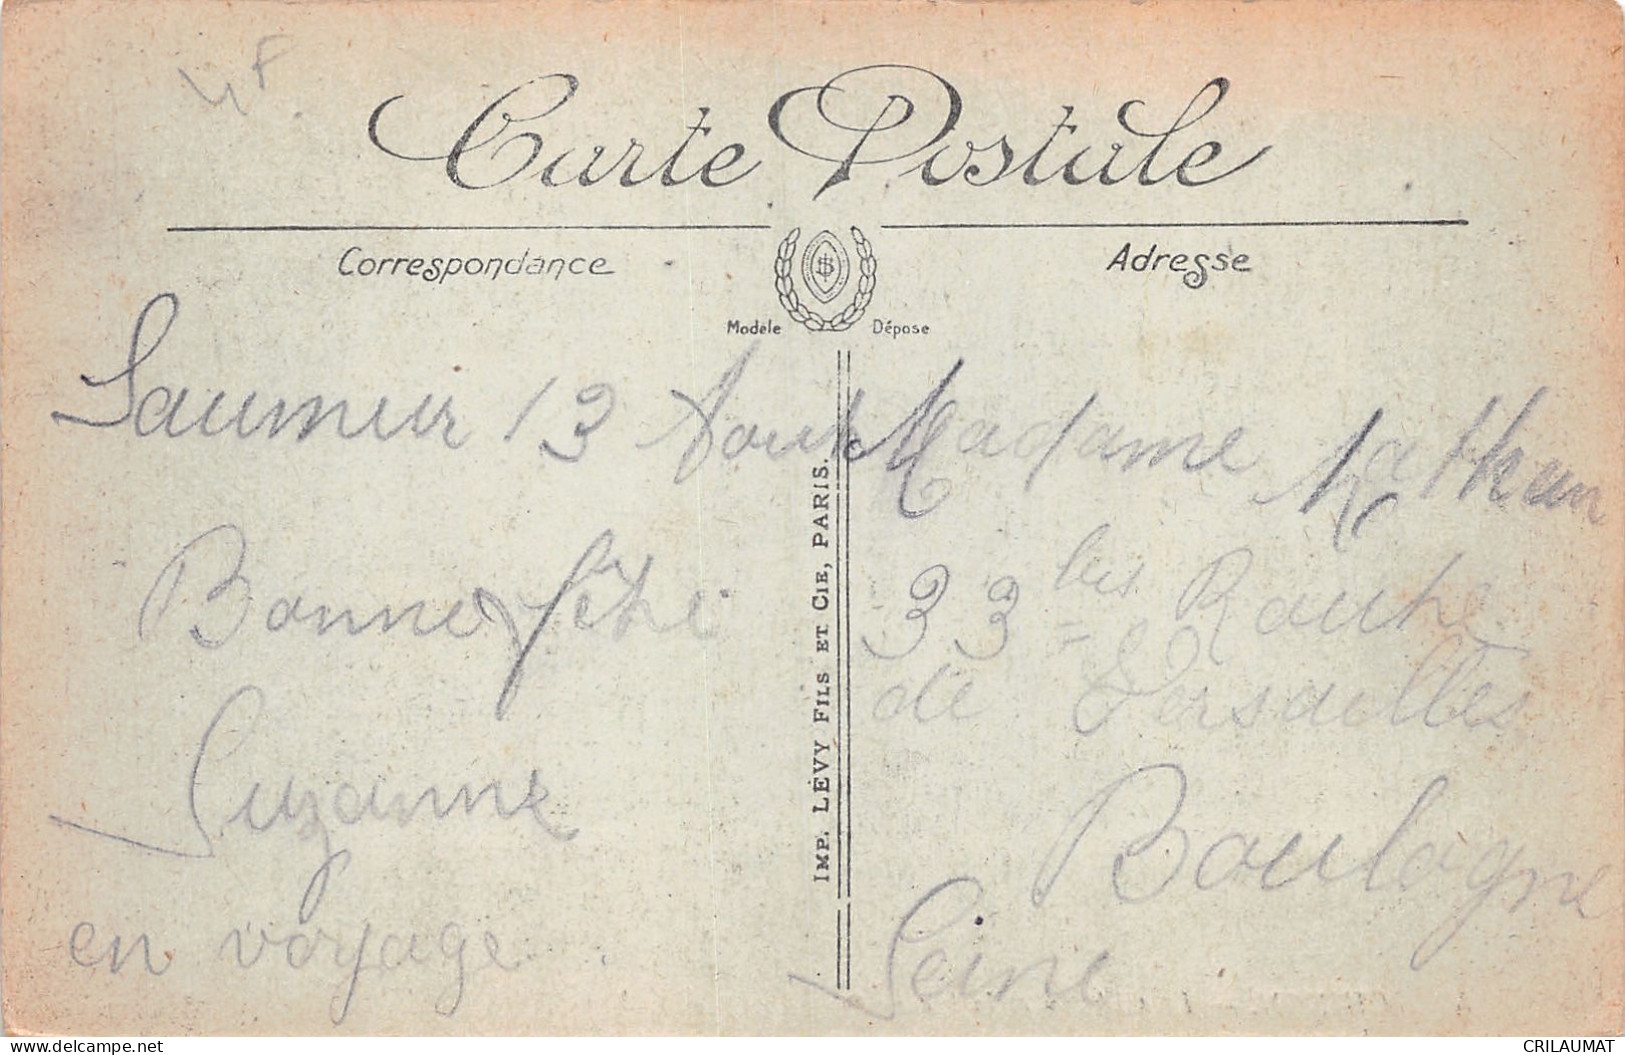 4F
Carte Postale
Correspondance
Adresse
Modèle Déposé
Saumur 13 Aout
Bonne fête
Suzanne
en voyage.
IMP. LÉVY FILS ET CIE, PARIS.
Madame Nathan
33 bis Route
de Versailles
Boulogne
Seine
delcampe.net
CRILAUMAT